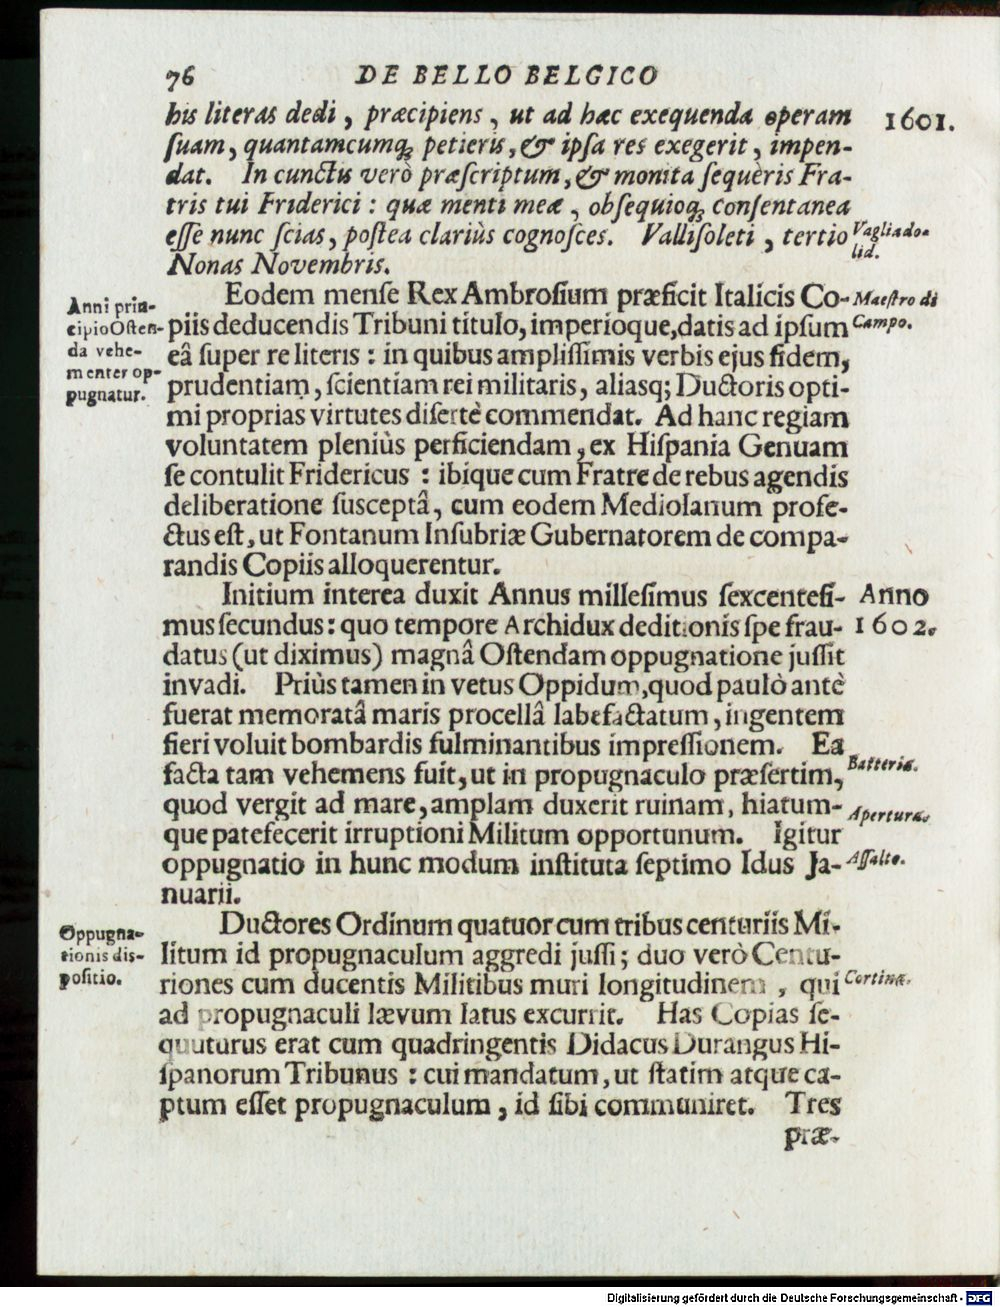 76 DE BELLO BELGICO
his literas dedi, præcipiens, ut ad hæc exequenda operam 1601.
ſuam, quantamcumq; petieris, & ipſa res exegerit, impen-
dat. In cunctis verò præſcriptum, & monita ſequèris Fra-
tris tui Friderici: quæ menti meæ, obſequioq; conſentanea
eſſe nunc ſcias, poſtea clariùs cognoſces. Valliſoleti, tertio Vagliado-
lid.
Nonas Novembris.
Anni prin-
cipio Oſten-
da vehe-
menter op-
pugnatur.
Eodem menſe Rex Ambroſium præficit Italicis Co- Maeſtro di
piis deducendis Tribuni titulo, imperioque, datis ad ipſum Campo.
eâ ſuper re literis: in quibus ampliſſimis verbis ejus fidem,
prudentiam, ſcientiam rei militaris, aliasq; Ductoris opti-
mi proprias virtutes diſertè commendat. Ad hanc regiam
voluntatem pleniùs perficiendam, ex Hiſpania Genuam
ſe contulit Fridericus: ibique cum Fratre de rebus agendis
deliberatione ſusceptâ, cum eodem Mediolanum profe-
ctus eſt, ut Fontanum Inſubriæ Gubernatorem de compa-
randis Copiis alloquerentur.
Initium interea duxit Annus milleſimus ſexcenteſi- Anno
mus ſecundus: quo tempore Archidux deditionis ſpe frau- 1602.
datus (ut diximus) magnâ Oſtendam oppugnatione juſſit
invadi. Priùs tamen in vetus Oppidum, quod paulò antè
fuerat memoratâ maris procellâ labefactatum, ingentem
fieri voluit bombardis fulminantibus impreſſionem. Ea
facta tam vehemens fuit, ut in propugnaculo præſertim, Batteria.
quod vergit ad mare, amplam duxerit ruinam, hiatum- Apertura.
que patefecerit irruptioni Militum opportunum. Igitur
oppugnatio in hunc modum inſtituta ſeptimo Idus Ja- Aſſalto.
nuarii.
Oppugna-
tionis diſ-
poſitio.
Ductores Ordinum quatuor cum tribus centuriis Mi-
litum id propugnaculum aggredi juſſi; duo verò Centu-
riones cum ducentis Militibus muri longitudinem, qui Cortina.
ad propugnaculi lævum latus excurrit. Has Copias ſe-
quuturus erat cum quadringentis Didacus Durangus Hi-
ſpanorum Tribunus: cui mandatum, ut ſtatim atque ca-
ptum eſſet propugnaculum, id ſibi communiret. Tres
præ-
Digitalisierung gefördert durch die Deutsche Forschungsgemeinschaft - DFG